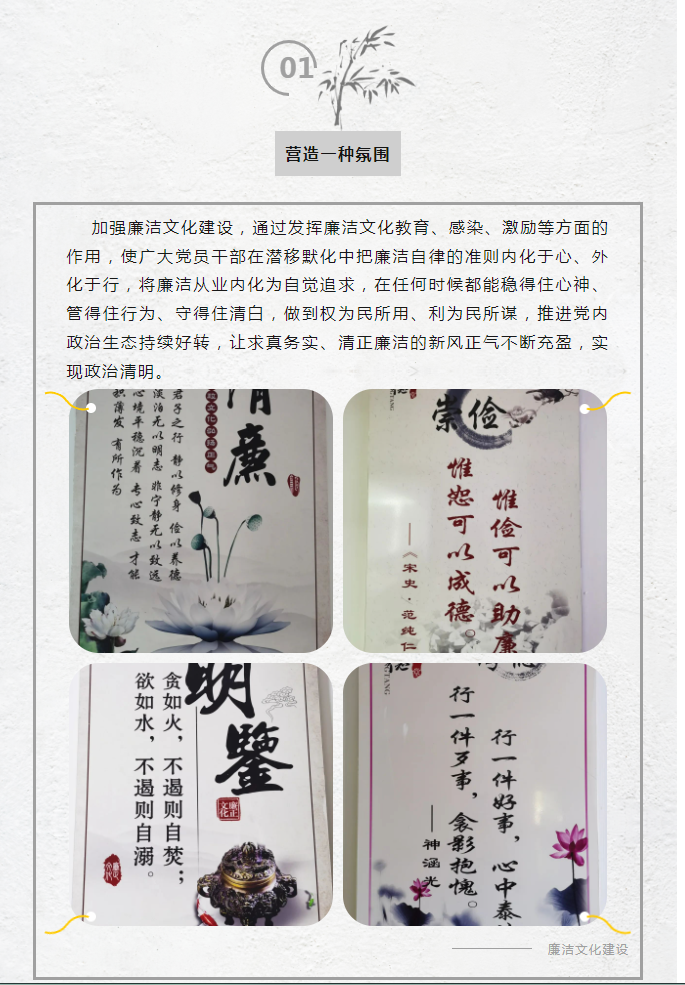 01
营造一种氛围
加强廉洁文化建设，通过发挥廉洁文化教育、感染、激励等方面的
作用，使广大党员干部在潜移默化中把廉洁自律的准则内化于心、外
化于行，将廉洁从业内化为自觉追求，在任何时候都能稳得住心神、
管得住行为、守得住清白，做到权为民所用、利为民所谋，推进党内
政治生态持续好转，让求真务实、清正廉洁的新风正气不断充盈，实
现政治清明。
清廉
君子之行 静以修身 俭以养德
淡泊无以明志 非宁静无以致远
心境平稳沉着 专心致志 才能
积薄发 有所作为
崇俭
惟俭可以助廉
惟恕可以成德。
——《宋史·范纯仁
明鉴
廉正文化
贪如火，不遏则自焚；
欲如水，不遏则自溺。
行一件好事，心中泰
行一件歹事，衾影抱愧。
——神涵光
廉洁文化建设